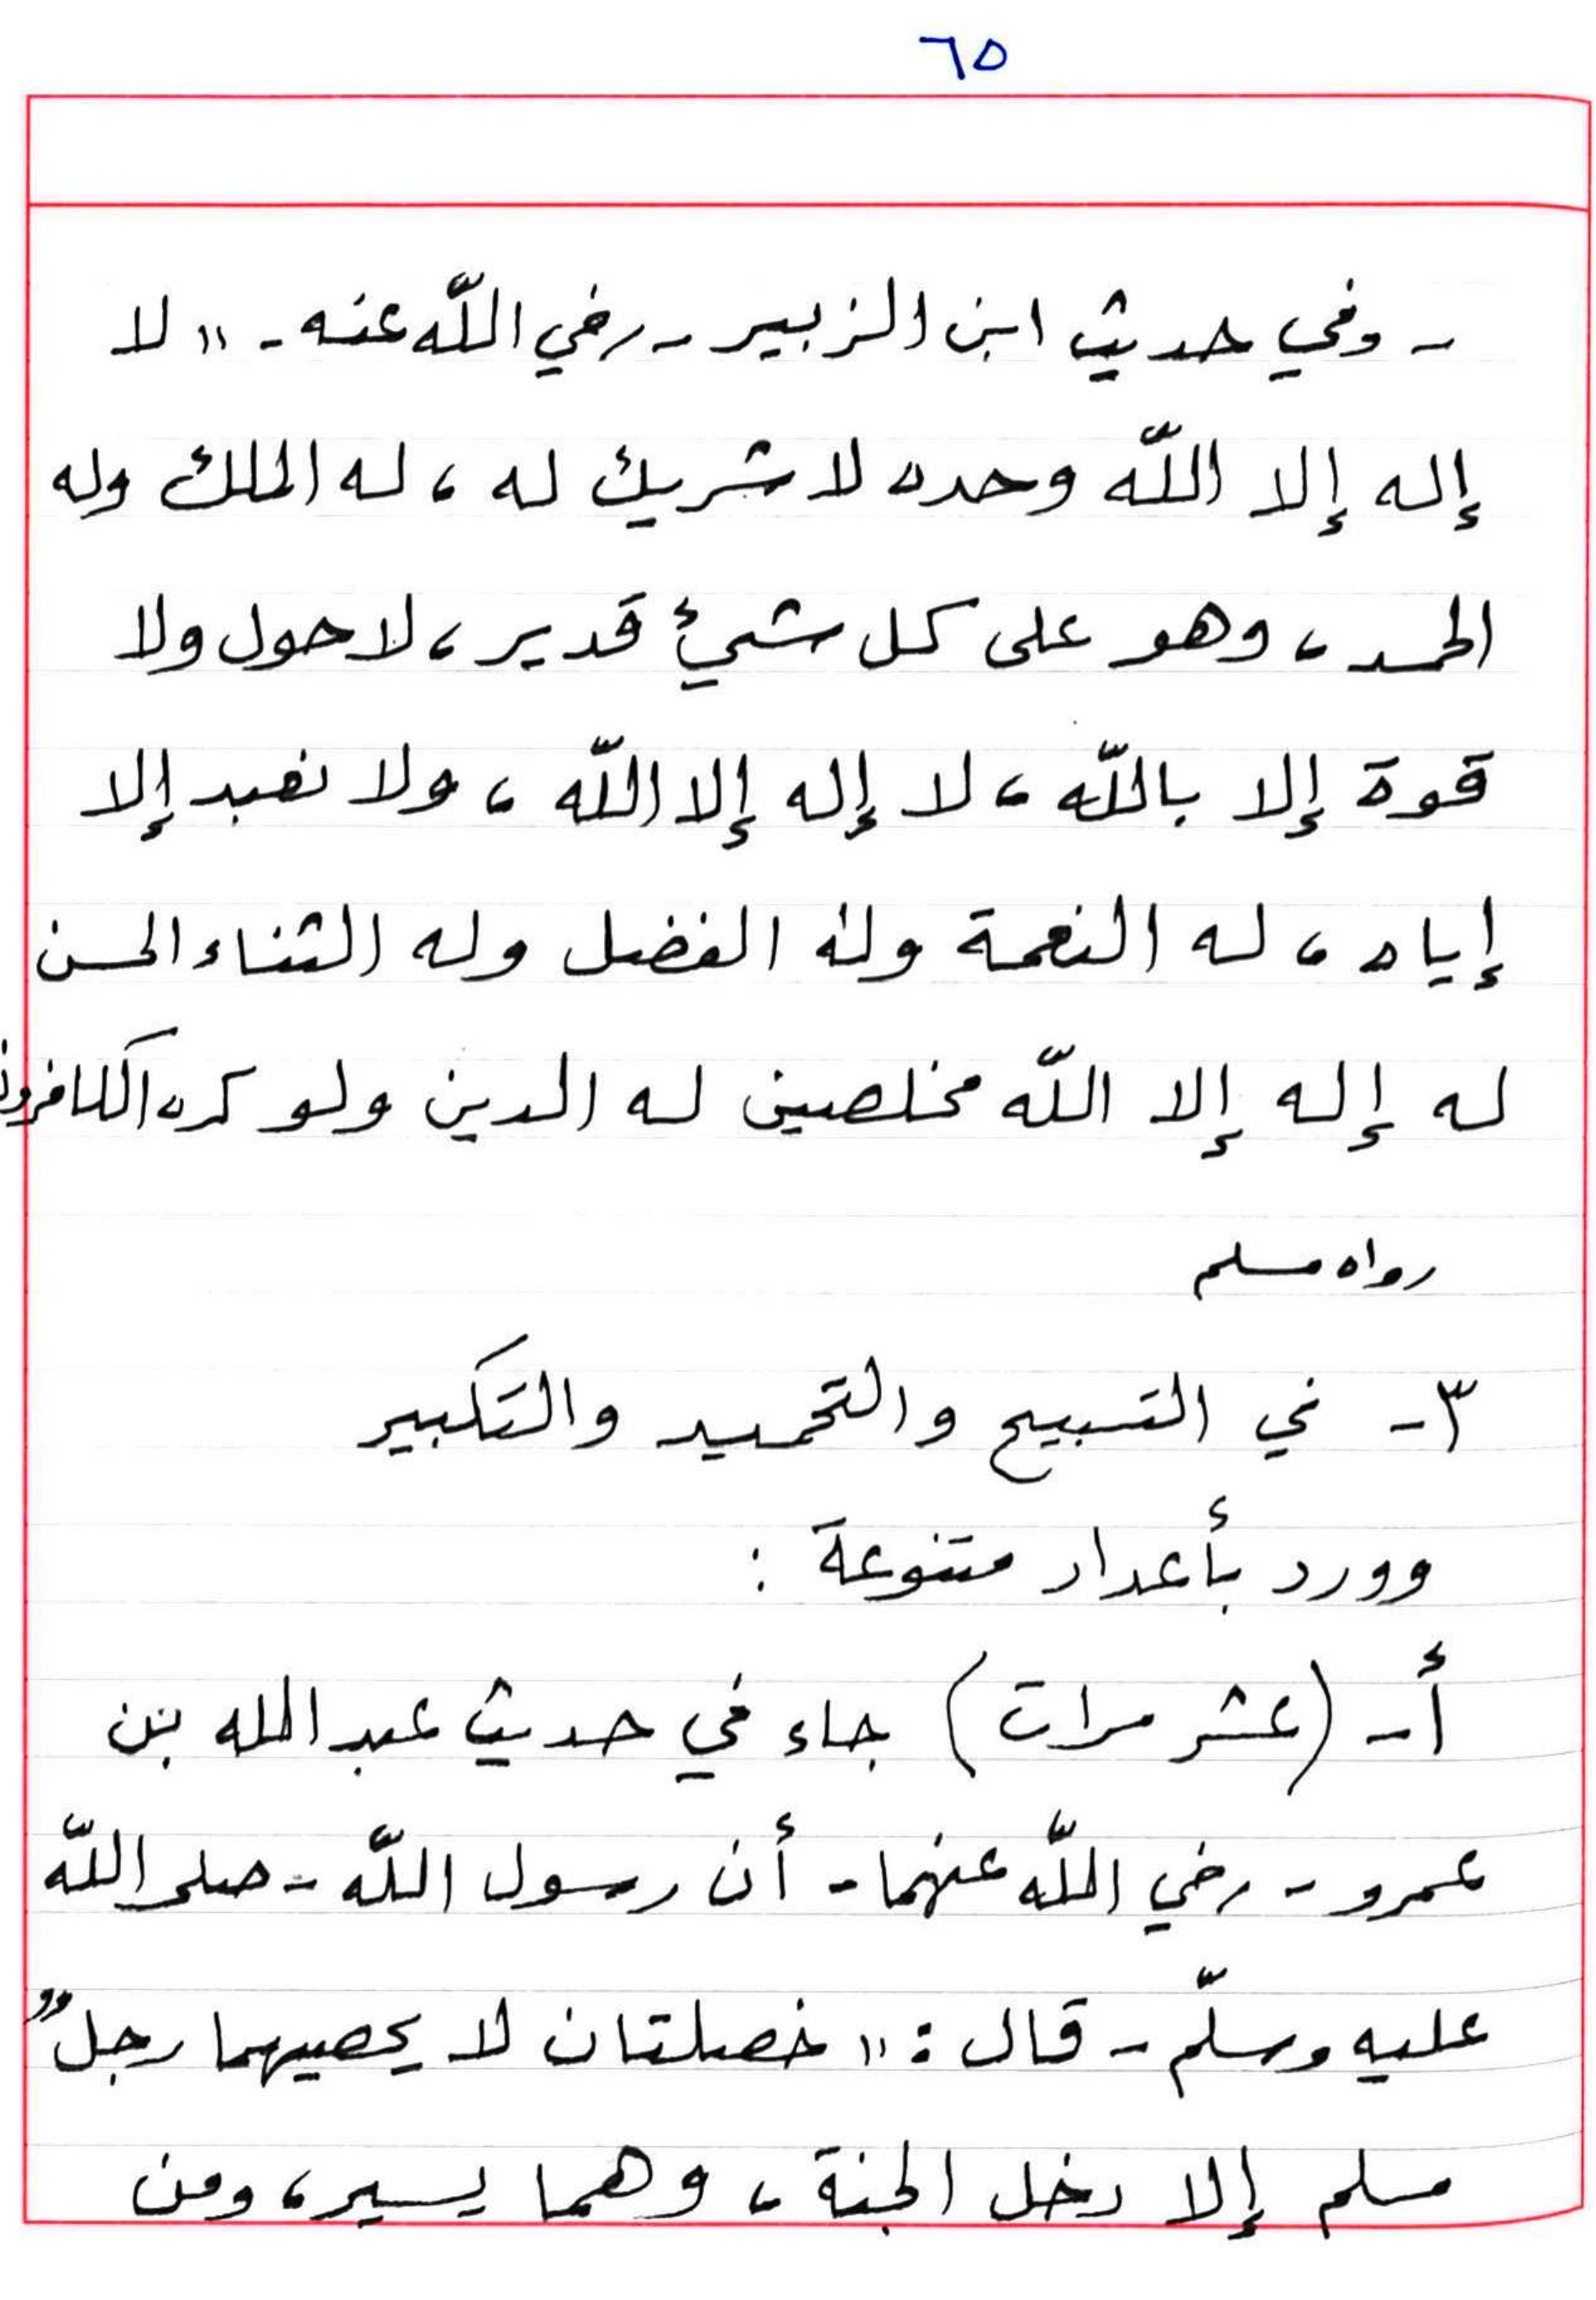 ٦٥
- وفي حديث ابن الزبير - رضي اللّه عنه - " لا
إله إلا اللّه وحده لا شريك له ، له الملك وله
الحمد ، وهو على كل شيئ قدير ، لا حول ولا
قوة إلا باللّه ، لا إله إلا اللّه ، ولا نعبد إلا
إياه ، له النعمة وله الفضل وله الثناء الحسن
له إله إلا اللّه مخلصين له الدين ولو كره الكافرون
رواه مسلم
٣- في التسبيح والتحميد والتكبير
وورد بأعداد متنوعة :
أ- (عشر مرات) جاء في حديث عبد الله بن
عمرو - رضي اللّه عنهما - أن رسول اللّه - صلى اللّه
عليه وسلّم - قال : " خصلتان لا يحصيهما رجلٌ
مسلم إلا دخل الجنة ، وهما يسير ، ومن